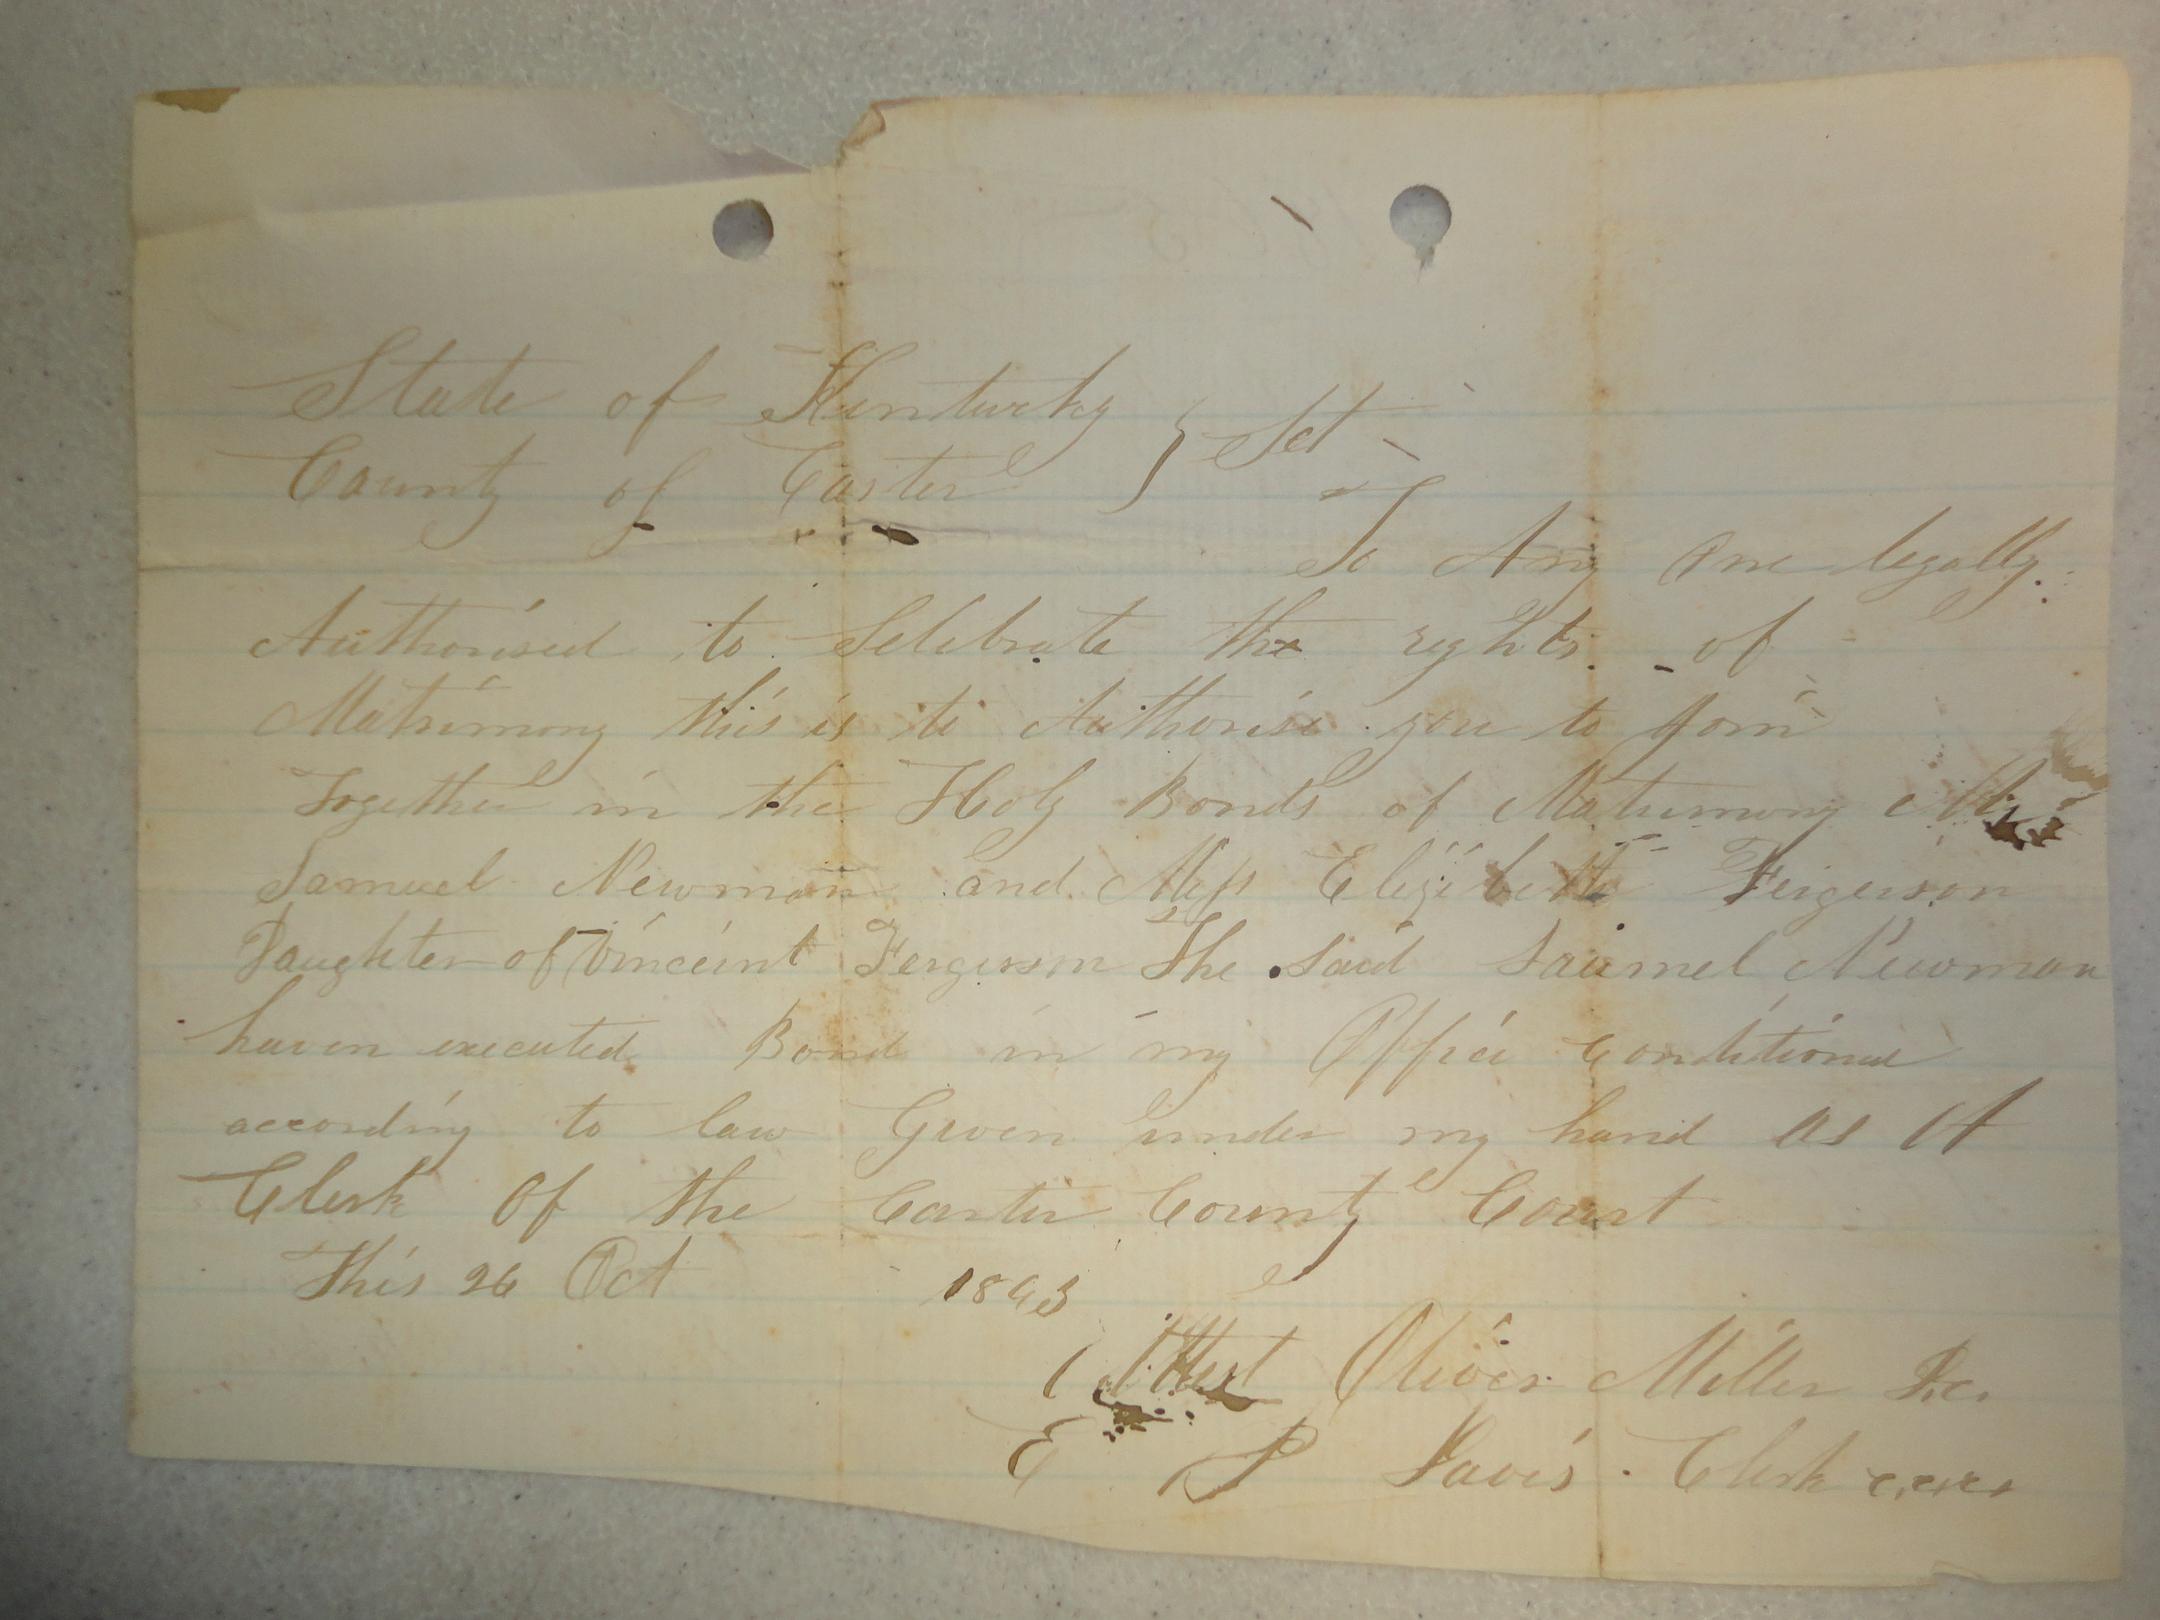 State of Kentucky } Sct
County of Carter
To Any One legally
Authorised to Selebrate the rights of
Matrimony this is to Authorise you to join
Together in the Holy Bonds of Matrimony Mr
Samuel Newman and Miss Elizibeth Fergerson
Daughter of Vinceint Fergerson The Said Saumel Newman
haven executed Bond in my Office Conditional
according to law Given under my hand as A
Clerk Of the Carter County Court
This 26 Oct 1863
Attest Oliver Miller D.C.
E P Davis Clerk